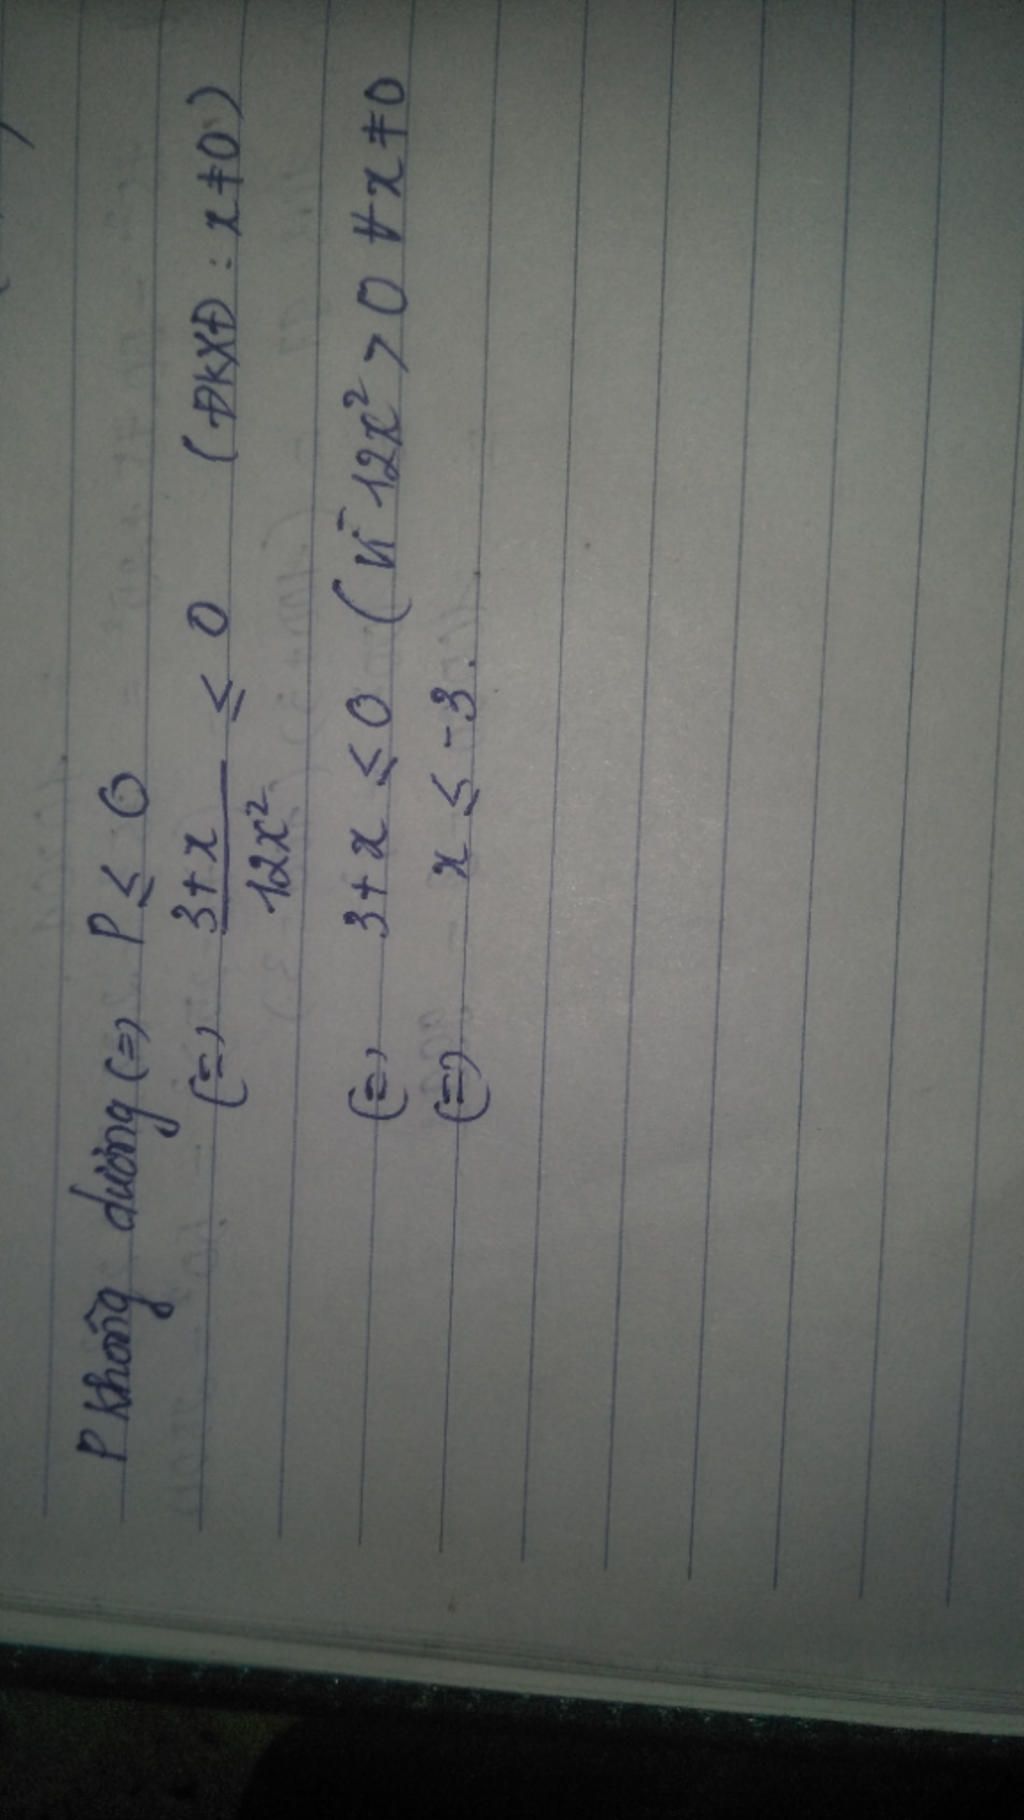 P không dương (=) P ≤ 0
(=) 3+x / 12x² ≤ 0 (ĐKXĐ : x ≠ 0)
(=) 3+x ≤ 0 (vì 12x² > 0 ∀ x ≠ 0
(=) x ≤ -3.